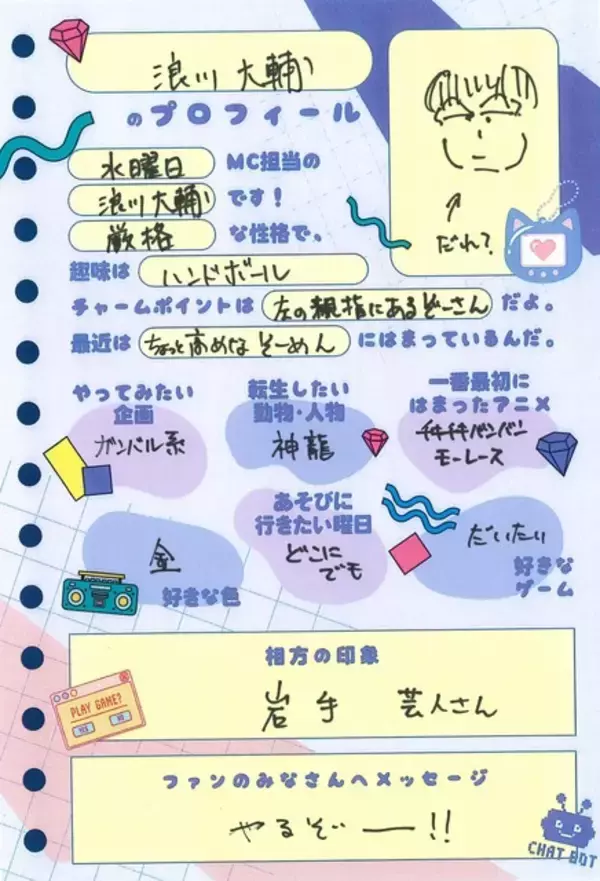 浪川 大輔
のプロフィール
水曜日 MC担当の
浪川大輔 です!
厳格 な性格で、
だれ?
趣味は ハンドボール
チャームポイントは 左の親指にあるぞーさん だよ。
最近は ちょっと高めなそーめん にはまっているんだ。
やってみたい
企画
ガンバル系
転生したい
動物・人物
神龍
一番最初に
はまったアニメ
チキチキバンバン
モーレース
金
好きな色
あそびに
行きたい曜日
どこに
でも
だいたい
好きな
ゲーム
相方の印象
岩手 芸人さん
PLAY GAME?
YES NO
ファンのみなさんへメッセージ
やるぞー!!
CHAT BOT